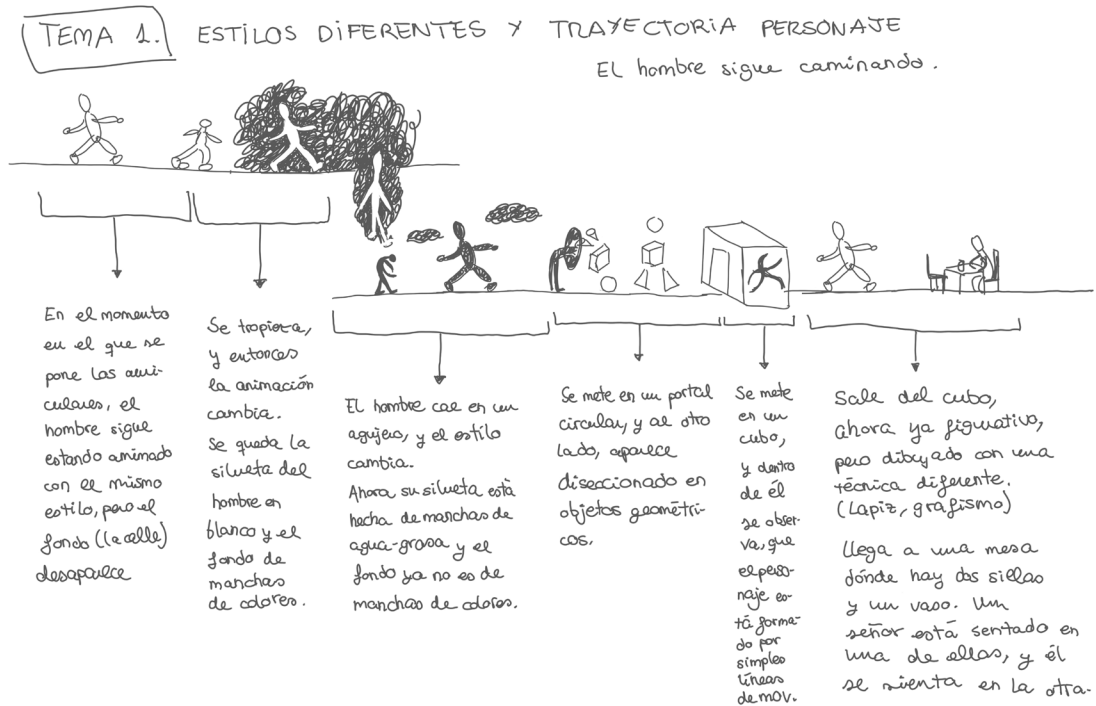 TEMA 1. ESTILOS DIFERENTES Y TRAYECTORIA PERSONAJE
El hombre sigue caminando.
En el momento
en el que se
pone los auri-
culares, el
hombre sigue
estando animado
con el mismo
estilo, pero el
fondo (la calle)
desaparece
Se tropieza,
y entonces
la animación
cambia.
Se queda la
silueta del
hombre en
blanco y el
fondo de
manchas
de colores.
El hombre cae en un
agujero, y el estilo
cambia.
Ahora su silueta está
hecha de manchas de
agua-grasa y el
fondo ya no es de
manchas de colores.
Se mete en un portal
circular, y al otro
lado, aparece
diseccionado en
objetos geométri-
cos.
Se mete
en un
cubo,
y dentro
de él
se obser-
va, que
el perso-
naje es-
tá forma-
do por
simples
líneas
de mov.
Sale del cubo,
ahora ya figurativo,
pero dibujado con una
técnica diferente.
(Lapiz, grafismo)
Llega a una mesa
dónde hay dos sillas
y un vaso. Un
señor está sentado en
una de ellas, y él
se sienta en la otra.